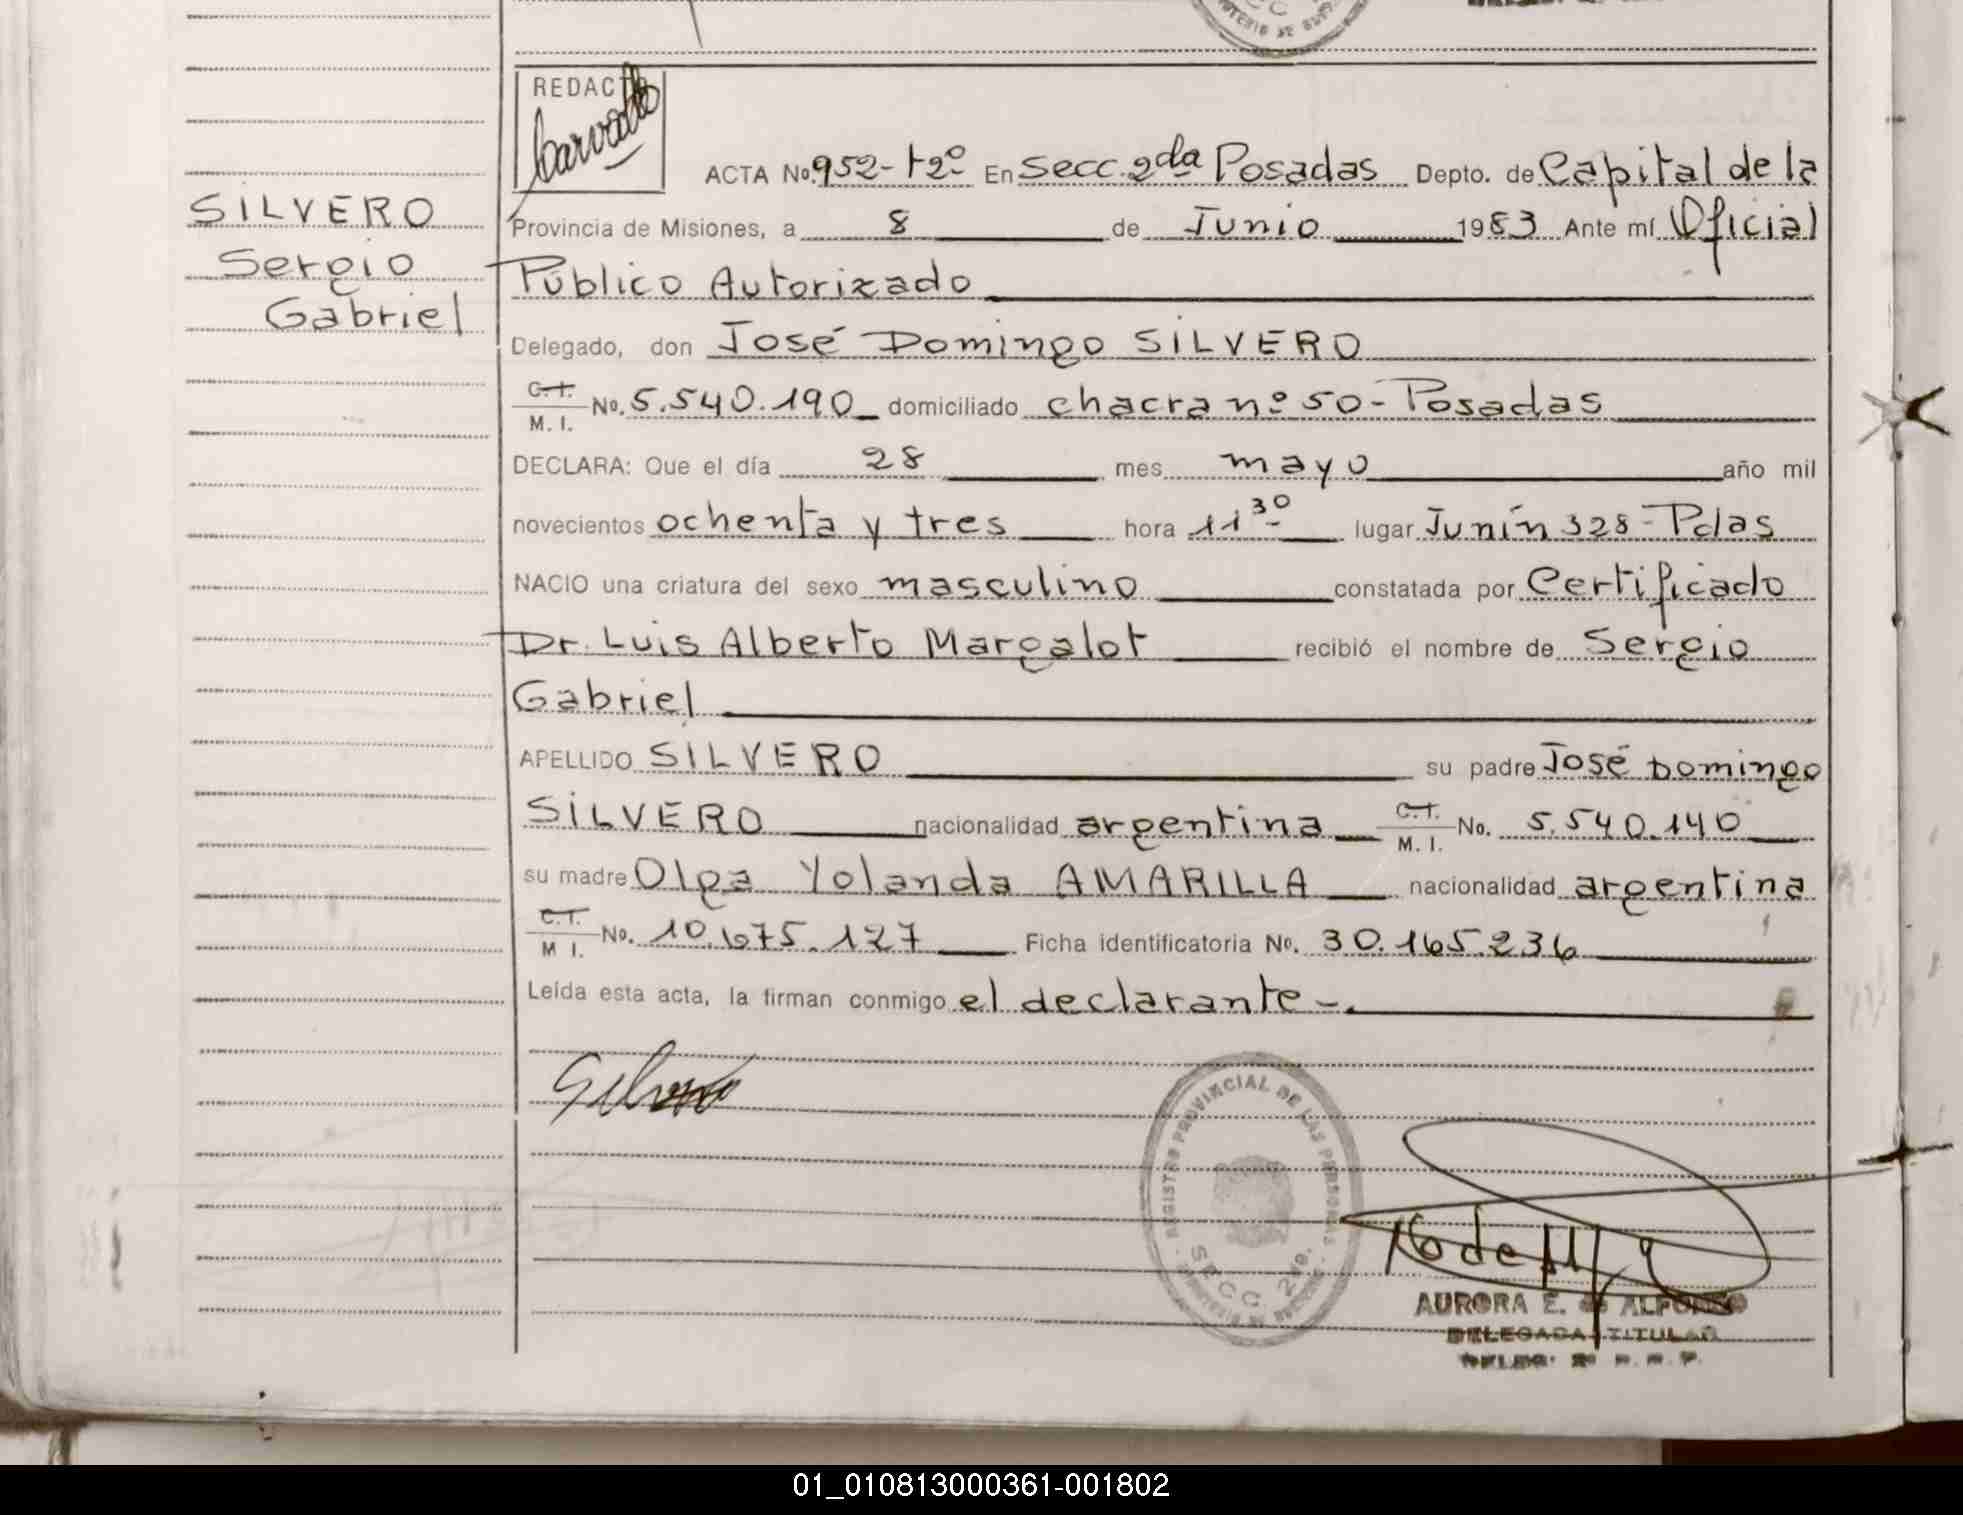 REDACTO
Carvallo
ACTA No. 952-tº2º En Secc. 2da Posadas Depto. de Capital de la
SILVERO
Sergio
Gabriel
Provincia de Misiones, a 8 de Junio 1983 Ante mí Oficial
Público Autorizado
Delegado, don José Domingo SILVERO
C.I. M. I. No. 5.540.190 domiciliado chacra nº 50-Posadas
DECLARA: Que el día 28 mes mayo año mil
novecientos ochenta y tres hora 11 30 lugar Junín 328-Pdas
NACIO una criatura del sexo masculino constatada por Certificado
Dr. Luis Alberto Margalot recibió el nombre de Sergio
Gabriel
APELLIDO SILVERO su padre José Domingo
SILVERO nacionalidad argentina C.I. M. I. No. 5.540.140
su madre Olga Yolanda AMARILLA nacionalidad argentina
C.I. M I. No. 10.675.127 Ficha identificatoria No. 30.165.236
Leída esta acta, la firman conmigo el declarante-.
REGISTRO PROVINCIAL DE LAS PERSONAS
SECC. 2da.
AURORA E. de ALFONSO
DELEGADA TITULAR
DELEG. 2ª R. P. P.
01_010813000361-001802